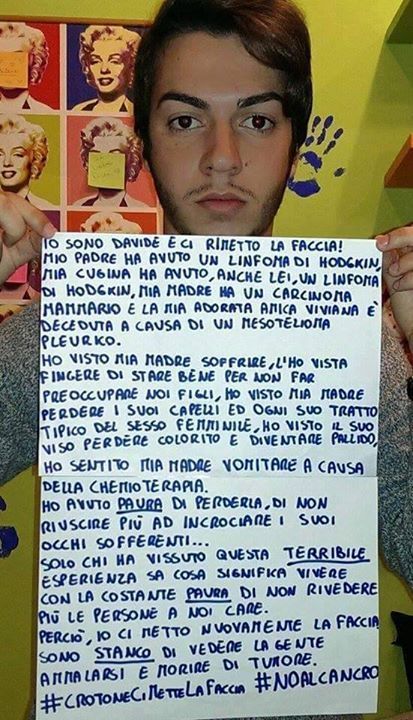 IO SONO DAVIDE E CI RIMETTO LA FACCIA!
MIO PADRE HA AVUTO UN LINFOMA DI HODGKIN,
MIA CUGINA HA AVUTO, ANCHE LEI, UN LINFOMA
DI HODGKIN, MIA MADRE HA UN CARCINOMA
MAMMARIO E LA MIA ADORATA AMICA VIVIANA È
DECEDUTA A CAUSA DI UN MESOTELIOMA
PLEURICO.
HO VISTO MIA MADRE SOFFRIRE, L'HO VISTA
FINGERE DI STARE BENE PER NON FAR
PREOCCUPARE NOI FIGLI, HO VISTO MIA MADRE
PERDERE I SUOI CAPELLI ED OGNI SUO TRATTO
TIPICO DEL SESSO FEMMINILE, HO VISTO IL SUO
VISO PERDERE COLORITO E DIVENTARE PALLIDO,
HO SENTITO MIA MADRE VOMITARE A CAUSA
DELLA CHEMIOTERAPIA.
HO AVUTO PAURA DI PERDERLA, DI NON
RIUSCIRE PIÙ AD INCROCIARE I SUOI
OCCHI SOFFERENTI...
SOLO CHI HA VISSUTO QUESTA TERRIBILE
ESPERIENZA SA COSA SIGNIFICA VIVERE
CON LA COSTANTE PAURA DI NON RIVEDERE
PIÙ LE PERSONE A NOI CARE.
PERCIÒ, IO CI METTO NUOVAMENTE LA FACCIA,
SONO STANCO DI VEDERE LA GENTE
AMMALARSI E MORIRE DI TUMORE.
#CROTONECIMETTELAFACCIA #NOALCANCRO